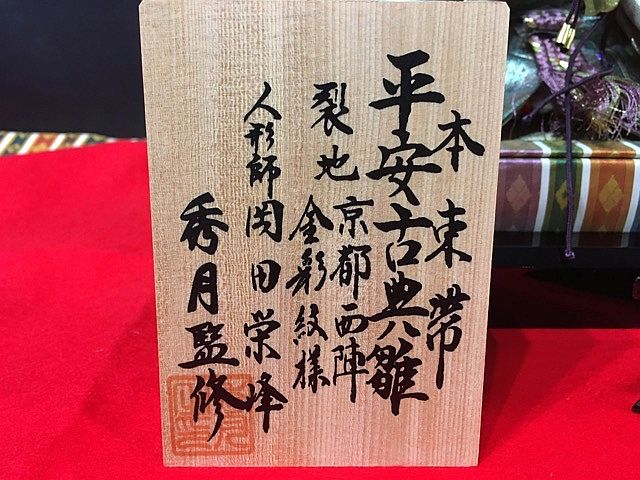 本束帯
平安古典雛
裂地 京都西陣
金彩紋様
人形師 岡田栄峰
秀月監修